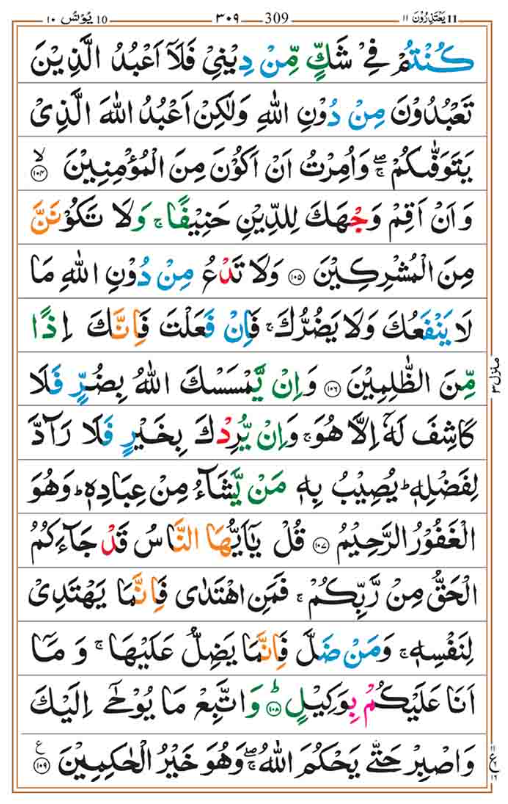 ١٠ يُوْنُس 10 ٣٠٩ 309 11 يَعْتَذِرُوْنَ ١١
كُنْتُمْ فِيْ شَكٍّ مِّنْ دِيْنِيْ فَلَآ اَعْبُدُ الَّذِيْنَ
تَعْبُدُوْنَ مِنْ دُوْنِ اللّٰهِ وَلٰكِنْ اَعْبُدُ اللّٰهَ الَّذِيْ
يَتَوَفّٰىكُمْ ۖۚ وَاُمِرْتُ اَنْ اَكُوْنَ مِنَ الْمُؤْمِنِيْنَ ۙ‏﴿۱۰۴﴾
وَاَنْ اَقِمْ وَجْهَكَ لِلدِّيْنِ حَنِيْفًا ۚ وَلَا تَكُوْنَنَّ
مِنَ الْمُشْرِكِيْنَ ﴿۱۰۵﴾ وَلَا تَدْعُ مِنْ دُوْنِ اللّٰهِ مَا
لَا يَنْفَعُكَ وَلَا يَضُرُّكَ ۚ فَاِنْ فَعَلْتَ فَاِنَّكَ اِذًا
مِّنَ الظّٰلِمِيْنَ ﴿۱۰۶﴾ وَاِنْ يَّمْسَسْكَ اللّٰهُ بِضُرٍّ فَلَا
كَاشِفَ لَهٗۤ اِلَّا هُوَ ۚ وَاِنْ يُّرِدْكَ بِخَيْرٍ فَلَا رَآدَّ
لِفَضْلِهٖ ؕ يُصِيْبُ بِهٖ مَنْ يَّشَآءُ مِنْ عِبَادِهٖ ؕ وَهُوَ
الْغَفُوْرُ الرَّحِيْمُ ﴿۱۰۷﴾ قُلْ يٰۤاَيُّهَا النَّاسُ قَدْ جَآءَكُمُ
الْحَقُّ مِنْ رَّبِّكُمْ ۚ فَمَنِ اهْتَدٰى فَاِنَّمَا يَهْتَدِيْ
لِنَفْسِهٖ ۚ وَمَنْ ضَلَّ فَاِنَّمَا يَضِلُّ عَلَيْهَا ۚ وَمَاۤ
اَنَا عَلَيْكُمْ بِوَكِيْلٍ ؕ﴿۱۰۸﴾ وَاتَّبِعْ مَا يُوْحٰۤى اِلَيْكَ
وَاصْبِرْ حَتّٰى يَحْكُمَ اللّٰهُ ۖۚ وَهُوَ خَيْرُ الْحٰكِمِيْنَ ﴿۱۰۹﴾ ع
منزل ٣